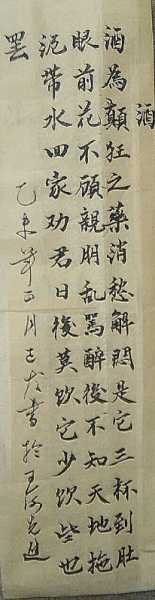 酒
酒為顛狂之藥消愁解悶是它三杯到肚
眼前花不顧親朋乱罵醉後不知天地拖
泥帶水回家劝君日後莫飲它少飲些也
罢
乙未年二月 書於